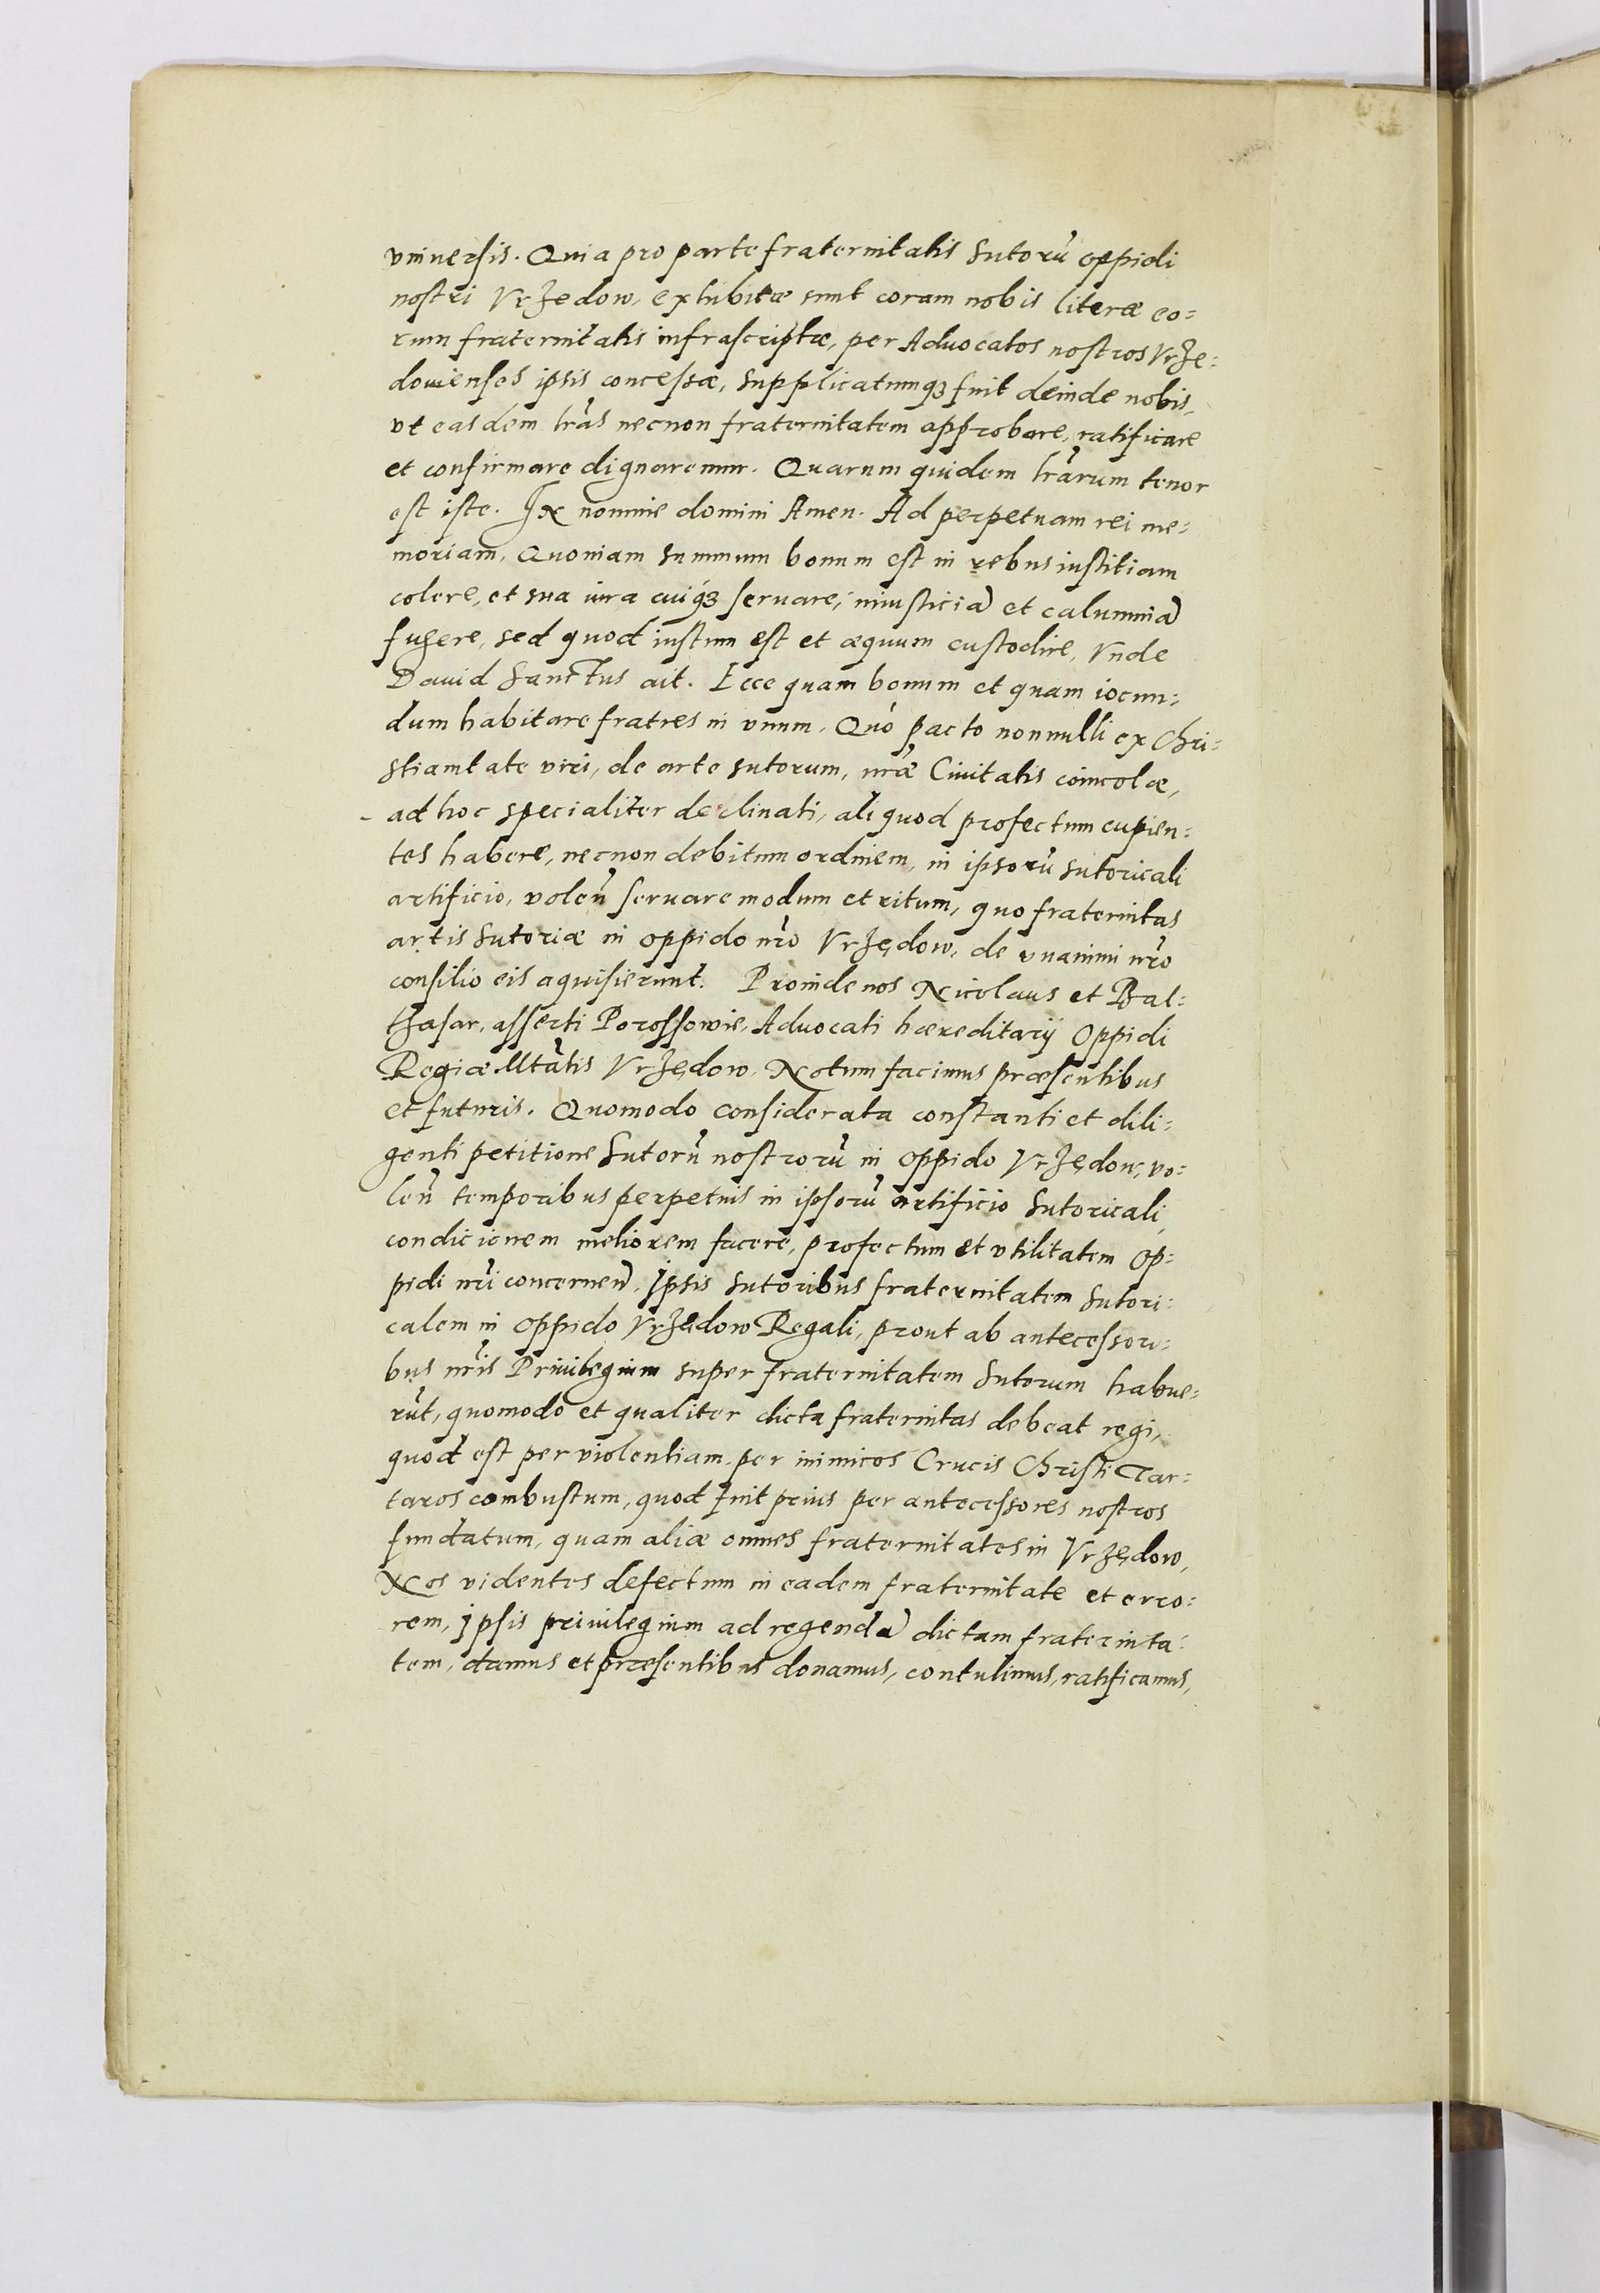 vniuersis. Quia pro parte fraternitatis Sutorũ oppidi
nostri Vrzedow, exhibitæ sunt coram nobis literæ eo=
rum fraternitatis infrascriptæ, per Aduocatos nostros Vrze=
douienses ipsis concessæ, supplicatumqꝫ fuit deinde nobis,
vt easdem lr̃as necnon fraternitatem approbare, ratificare
et confirmare dignaremur. Quarum quidem lr̃arum tenor
est iste. In nomine domini Amen. Ad perpetuam rei me=
moriam, Quoniam summum bonum est in rebus iustitiam
colere, et sua iura cuiqꝫ seruare, iniusticiã et calumniã
fugere, sed quod iustum est et æquum custodire, Vnde
Dauid Sanctus ait. Ecce quam bonum et quam iocun=
dum habitare fratres in vnum. Quo pacto nonnulli ex Chri=
stianitate viri, de arte sutorum, nr̃æ Ciuitatis coincolæ,
ad hoc specialiter declinati, aliquod profectum cupien=
tes habere, necnon debitum ordinem, in ipsorũ sutoricali
artificio, volen̄ seruare modum et ritum, quo fraternitas
artis Sutoriæ in oppido nr̃o Vrzędow, de vnanimi nr̃o
consilio eis aquisierunt. Proinde nos Nicolaus et Bal=
thasar, asserti Porossowie, Aduocati hæreditarij Oppidi
Regiæ Mtãtis Vrzędow, Notum facimus præsentibus
et futuris. Quomodo considerata constanti et dili=
genti petitione Sutorũ nostrorũ in oppido Vrzędow, vo=
len̄ temporibus perpetuis in ipsorũ artificio Sutoricali,
condicionem meliorem facere, profectum et vtilitatem Op=
pidi nr̃i concernen̄. Ipsis Sutoribus fraternitatem Sutori=
calem in oppido Vrzędow Regali, prout ab antecessori=
bus nr̃is Priuilegium super fraternitatem Sutorum habue=
rũt, quomodo et qualiter dicta fraternitas debeat regi,
quod est per violentiam per inimicos Crucis Christi Tar=
taros combustum, quod fuit prius per antecessores nostros
fundatum, quam aliæ omnes fraternitates in Vrzędow,
Nos videntes defectum in eadem fraternitate et erro=
rem, ipsis priuilegium ad regendã dictam fraternita=
tem, damus et præsentibus donamus, contulimus, ratificamus,